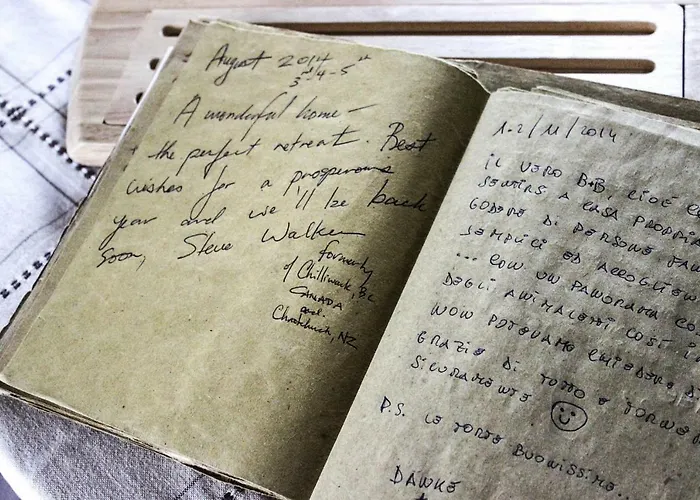 August 2014
3rd/4-5th
A wonderful home -
the perfect retreat. Best
wishes for a prosperous
year and we'll be back
soon, Steve Walker
formerly
of Chilliwack, BC
CANADA
and
Christchurch, NZ
1-2/11/2014
IL VERO B&B, CIOÈ
SENTIRSI A CASA PROPRIA
GODERE DI PERSONE
SEMPLICI ED ACCOGLIENTI
... CON UN PANORAMA
DEGLI ANIMALETTI COSÌ
NON POTEVAMO CHIEDERE DI
GRAZIE DI TUTTO E
SICURAMENTE
P.S. LE TORTE BUONISSIME